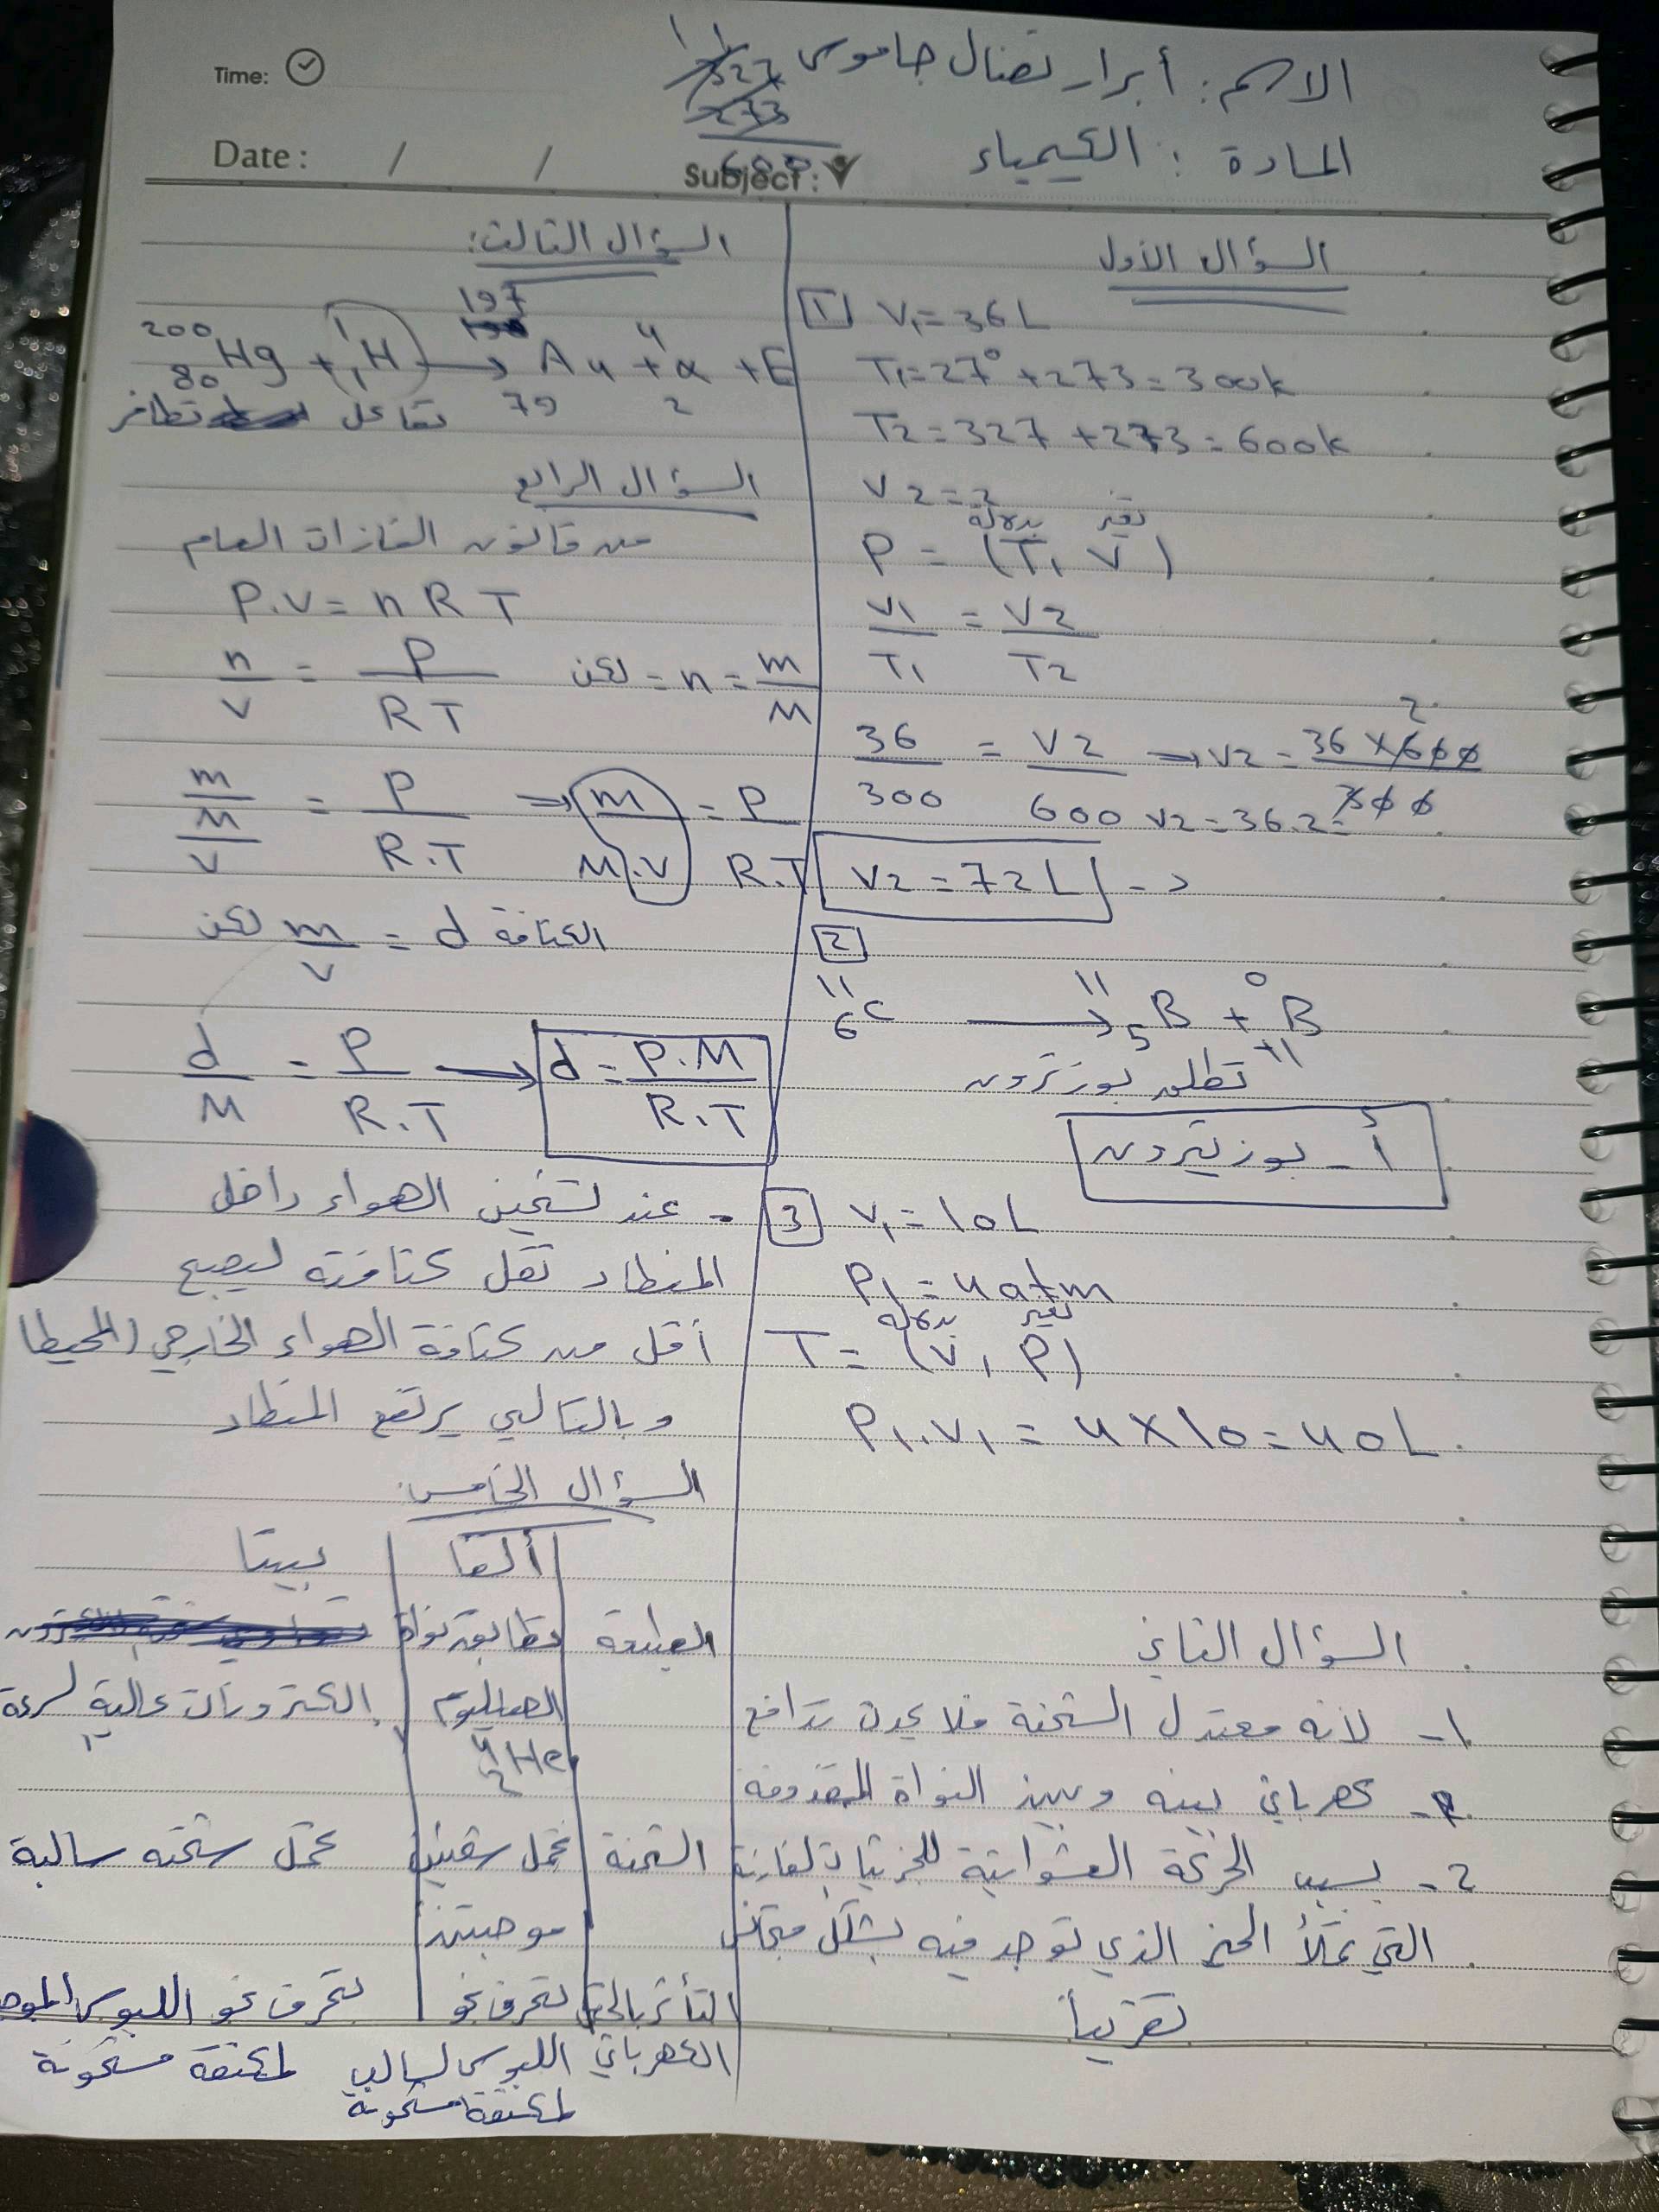 Time:
الاسم: أبرار نضال جاموس
Date: / /
Subject:
المادة: الكيمياء
السؤال الأول
[1] V₁ = 36 L
T₁ = 27° + 273 = 300k
T₂ = 327 + 273 = 600k
V₂ = ?
تغير بدلالة
P = (T, V)
V₁/T₁ = V₂/T₂
36/300 = V₂/600 → V₂ = 36 × 600/300
V₂ = 36.2 =
V₂ = 72 L
[2]
¹¹₆C → ¹¹₅B + ⁰₊₁B
تطلق بوزترون
أ - بوزيترون
[3] V₁ = 10 L
P₁ = 4 atm
تغير بدلالة
T = (V, P)
P₁.V₁ = 4 × 10 = 40 L
السؤال الثاني
1- لأنه معتدل الشحنة فلا يحدث تدافع
كهربائي بينه وبين النواة المقذوفة
2- بسبب الحركة العشوائية للجزيئات الغازية
التي تملأ الحيز الذي توجد فيه بشكل متجانس
تقريباً
السؤال الثالث:
²⁰⁰₈₀Hg + ¹₁H → ¹⁹⁷₇₉Au + ⁴₂α + E
تفاعل تطافر
السؤال الرابع
من قانون الغازات العام
P.V = n R T
n/V = P/RT لكن = n = m/M
m/M/V = P/R.T ⇒ m/M.V = P/R.T
الكثافة d = m/V لكن
d/M = P/R.T → d = P.M/R.T
- عند تسخين الهواء داخل
المنطاد تقل كثافته ليصبح
أقل من كثافة الهواء الخارجي (المحيط)
وبالتالي يرتفع المنطاد
السؤال الخامس:
ألفا بيتا
الطبيعة تطابق نواة
الهيليوم الكترونات عالية السرعة
⁴₂He
الشحنة تحمل شحنتين تحمل شحنة سالبة
موجبتين
التأثر بالحقل تنحرف نحو تنحرف نحو اللبوس الموجب
الكهربائي اللبوس السالب لمكثفة مشحونة
لمكثفة مشحونة